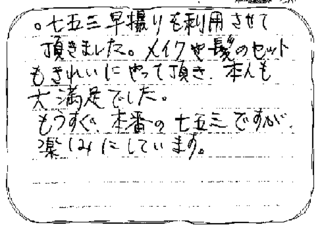 。七五三早撮りを利用させて
頂きました。メイクや髪のセット
もきれいにやって頂き、本人も
大満足でした。
もうすぐ、本番の七五三ですが、
楽しみにしています。